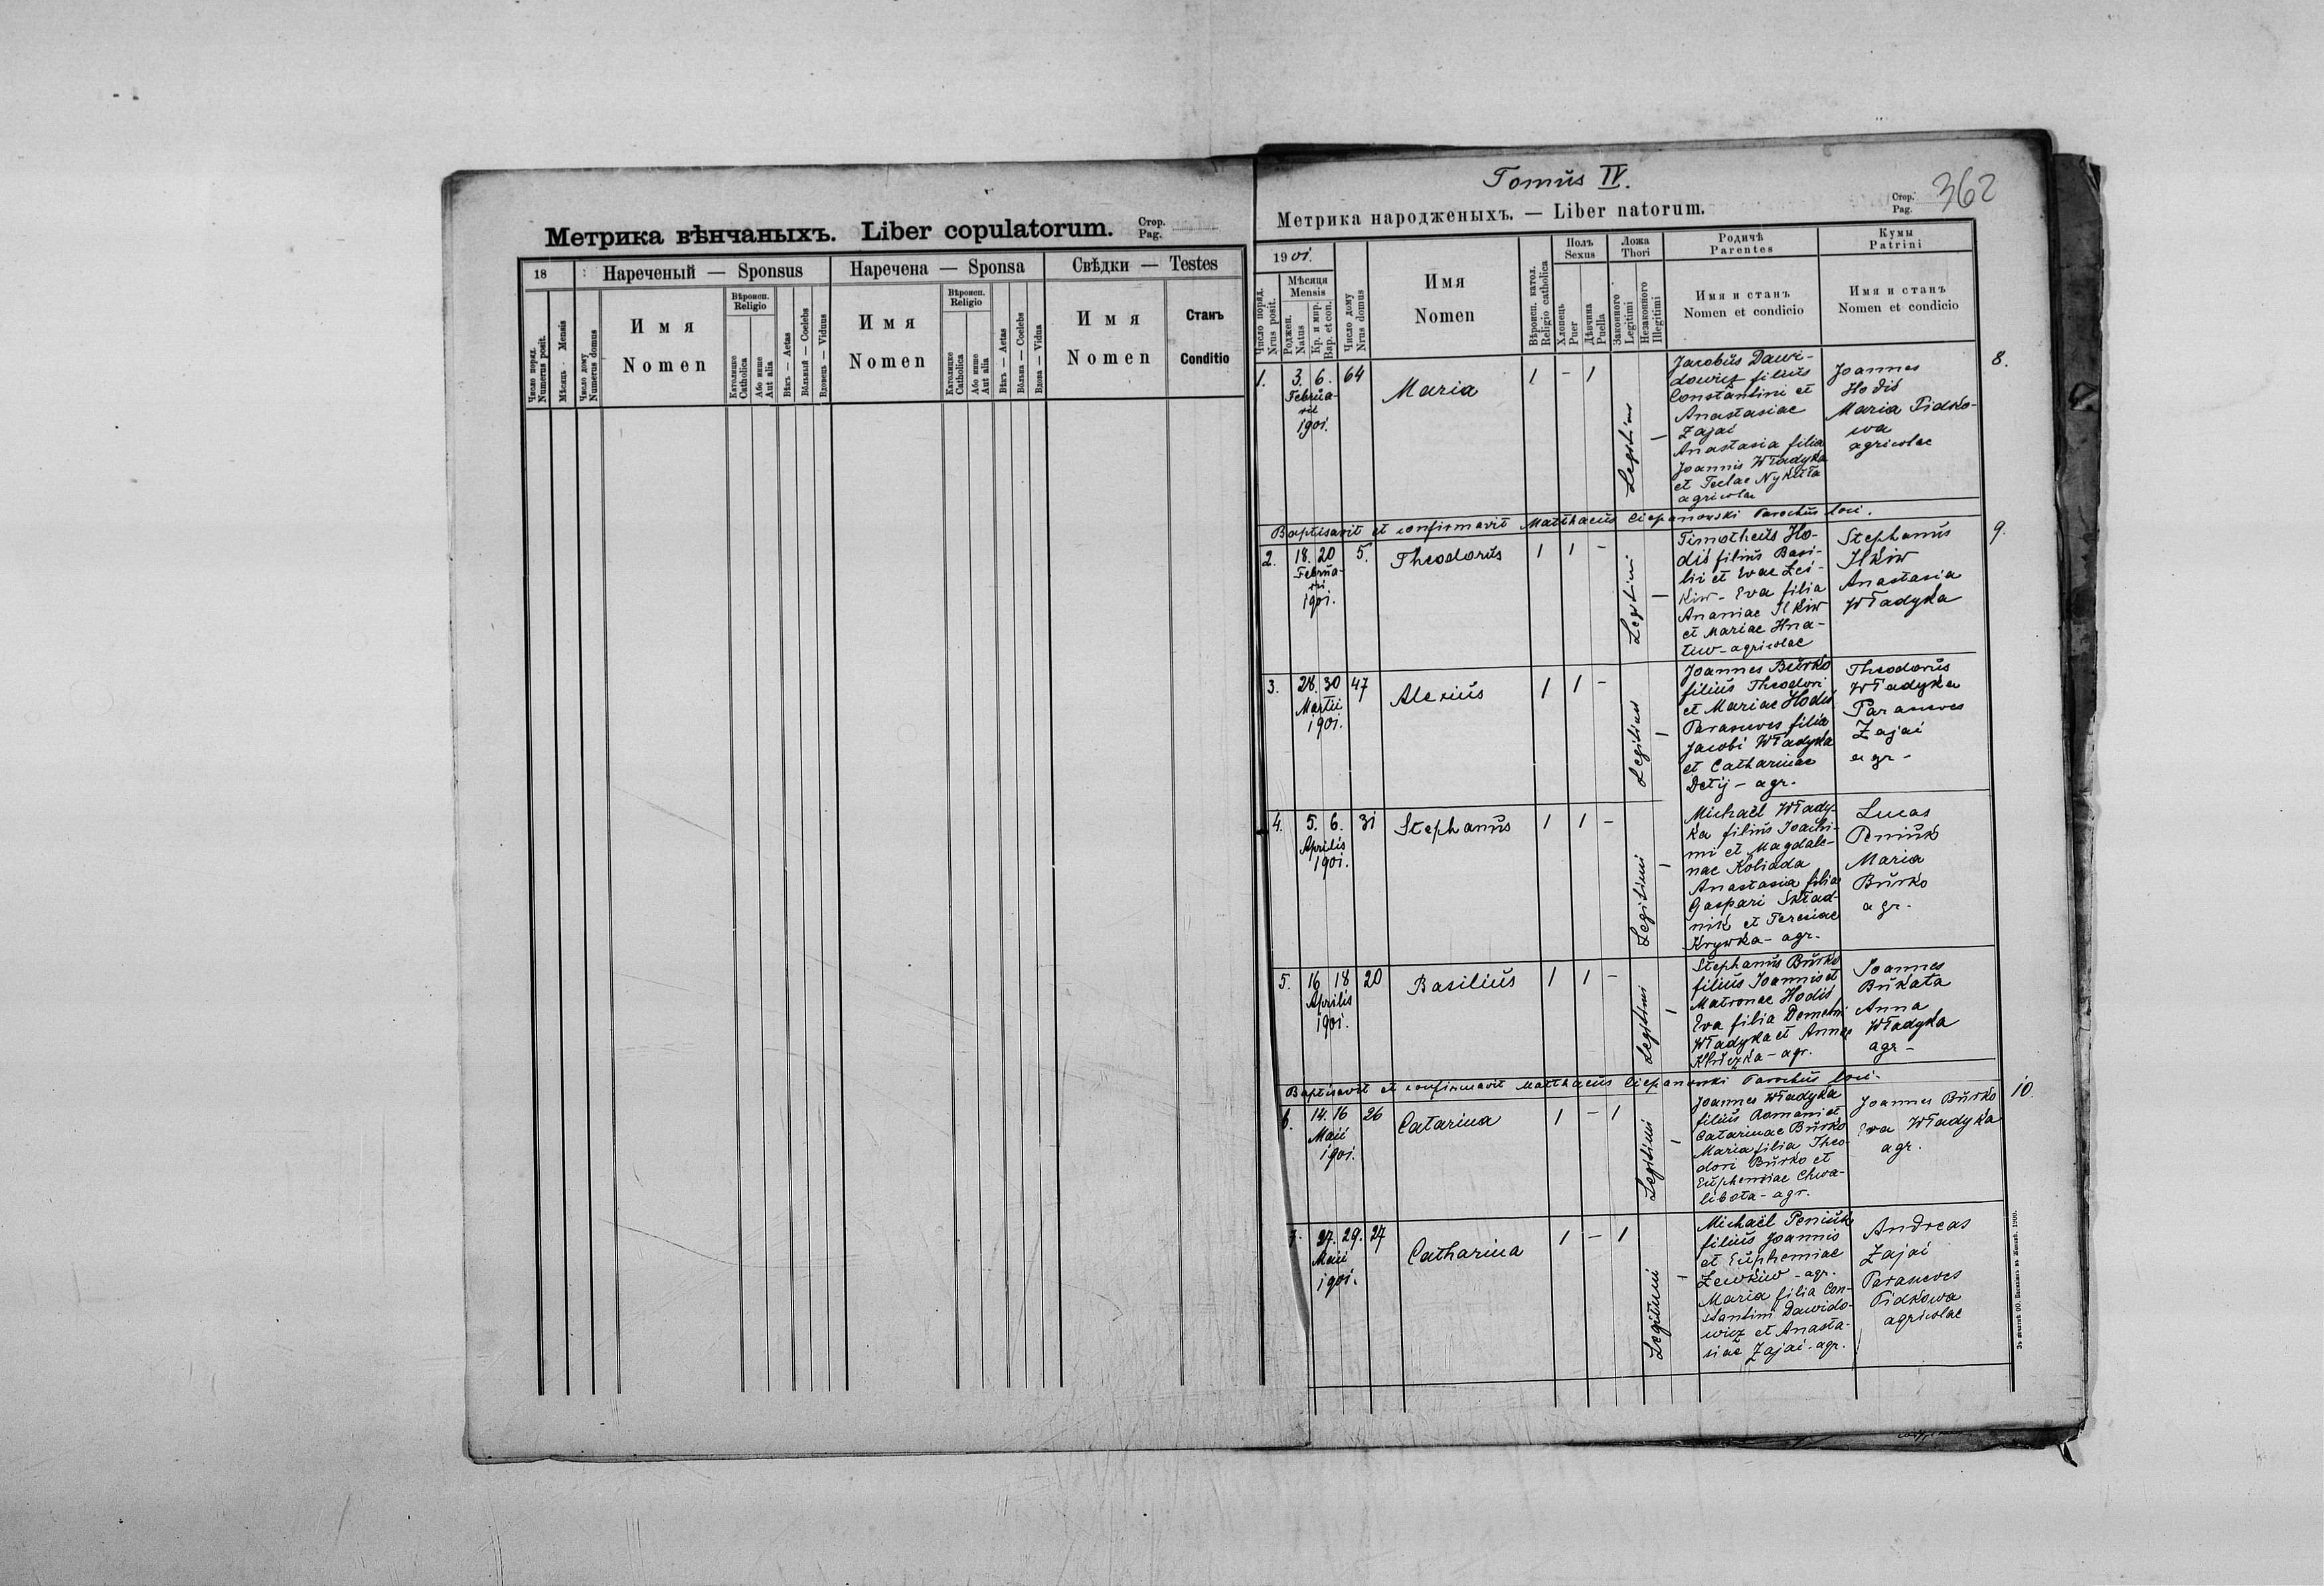 Метрика вѣнчаныхъ. Liber copulatorum.
Стор.
Pag.
18
Нареченый — Sponsus
Наречена — Sponsa
Свѣдки — Testes
Число поряд.
Numerus posit.
Мѣсяць - Mensis
Число дому
Numerus domus
Имя
Nomen
Вѣроисп.
Religio
Католицке
Catholica
Або инше
Aut alia
Вѣкъ — Aetas
Вôльный — Coelebs
Вдовець — Viduus
Имя
Nomen
Вѣроисп.
Religio
Католицке
Catholica
Або инше
Aut alia
Вѣкъ — Aetas
Вôльна — Coelebs
Вдова — Vidua
Имя
Nomen
Станъ
Conditio
Tomŭs IV.
Метрика народженыхъ. — Liber natorum.
Стор.
Pag.
362
1901.
Число поряд.
Nrus posit.
Мѣсяця
Mensis
Роджен.
Natus
Кр. и мир.
Bap. et con.
Число дому
Nrus domus
Имя
Nomen
Вѣроисп. катол.
Religio catholica
Полъ
Sexus
Хлопець
Puer
Дѣвчина
Puella
Ложа
Thori
Законного
Legitimi
Незаконного
Illegitimi
Родичѣ
Parentes
Имя и станъ
Nomen et condicio
Кумы
Patrini
Имя и станъ
Nomen et condicio
1. 3. 6. 64 Maria 1 - 1
Februa-
rii
1901.
Legitimi
1
Jacobŭs Dawi-
dowicz filiŭs
Constantini et
Anastasiae
Zajać
Anastasia filia
Joannis Władyka
et Teclae Nykŭła
agricolae
Joannes
Hodiś
Maria Pidko-
wa
agricolae
8.
Baptisavit et confirmavit Matthaeŭs Ciepanowski Parochŭs loci.
2. 18. 20 5. Theodorŭs 1 1 -
Februa-
rii
1901.
Legitimi
1
Timotheŭs Ho-
diś filiŭs Basi-
lii et Evae Leś-
kiw - Eva filia
Ananiae Ilkiw
et Mariae Hna-
tiw - agricolae
Stephanŭs
Ilkiw
Anastasia
Władyka
9.
3. 28. 30 47 Alexiŭs 1 1 -
Martii
1901.
Legitimi
1
Joannes Bŭrko
filiŭs Theodori
et Mariae Hodiś
Parasceves filia
Jacobi Władyka
et Catharinae
Detij - agr.
Theodorŭs
Władyka
Parasceves
Zajać
agr -
4. 5. 6. 31 Stephanŭs 1 1 -
Aprilis
1901.
Legitimi
1
Michaël Włady-
ka filiŭs Joachi-
mi et Magdale-
nae Koliada
Anastasia filia
Gaspari Skład-
nik et Teresiae
Krywka - agr.
Lucas
Peniŭk
Maria
Bŭrko
agr.
5. 16 18 20 Basiliŭs 1 1 -
Aprilis
1901.
Legitimi
1
Stephanŭs Bŭrko
filiŭs Joannis et
Matronae Hodiś,
Eva filia Demetri
Władyka et Annae
- agr.
Joannes
Bŭkata
Anna
Władyka
agr -
Baptisavit et confirmavit Matthaeŭs Ciepanowski Parochŭs loci.
6. 14. 16 26 Catarina 1 - 1
Maii
1901.
Legitimi
1
Joannes Władyka
filiŭs Romani et
Catarinae Bŭrko
Maria filia Theo-
dori Bŭrko et
Eŭphemiae Chwa-
libota - agr.
Joannes Bŭrko
Eva Władyka
agr.
10.
7. 27. 29. 27 Catharina 1 - 1
Maii
1901.
Legitimi
1
Michaël Peniŭk
filiŭs Joannis
et Eŭphemiae
Lewkiw - agr.
Maria filia Con-
stantini Dawido-
wicz et Anasta-
siae Zajać - agr.
Andreas
Zajać
Parasceves
Pidkowa
agricolae